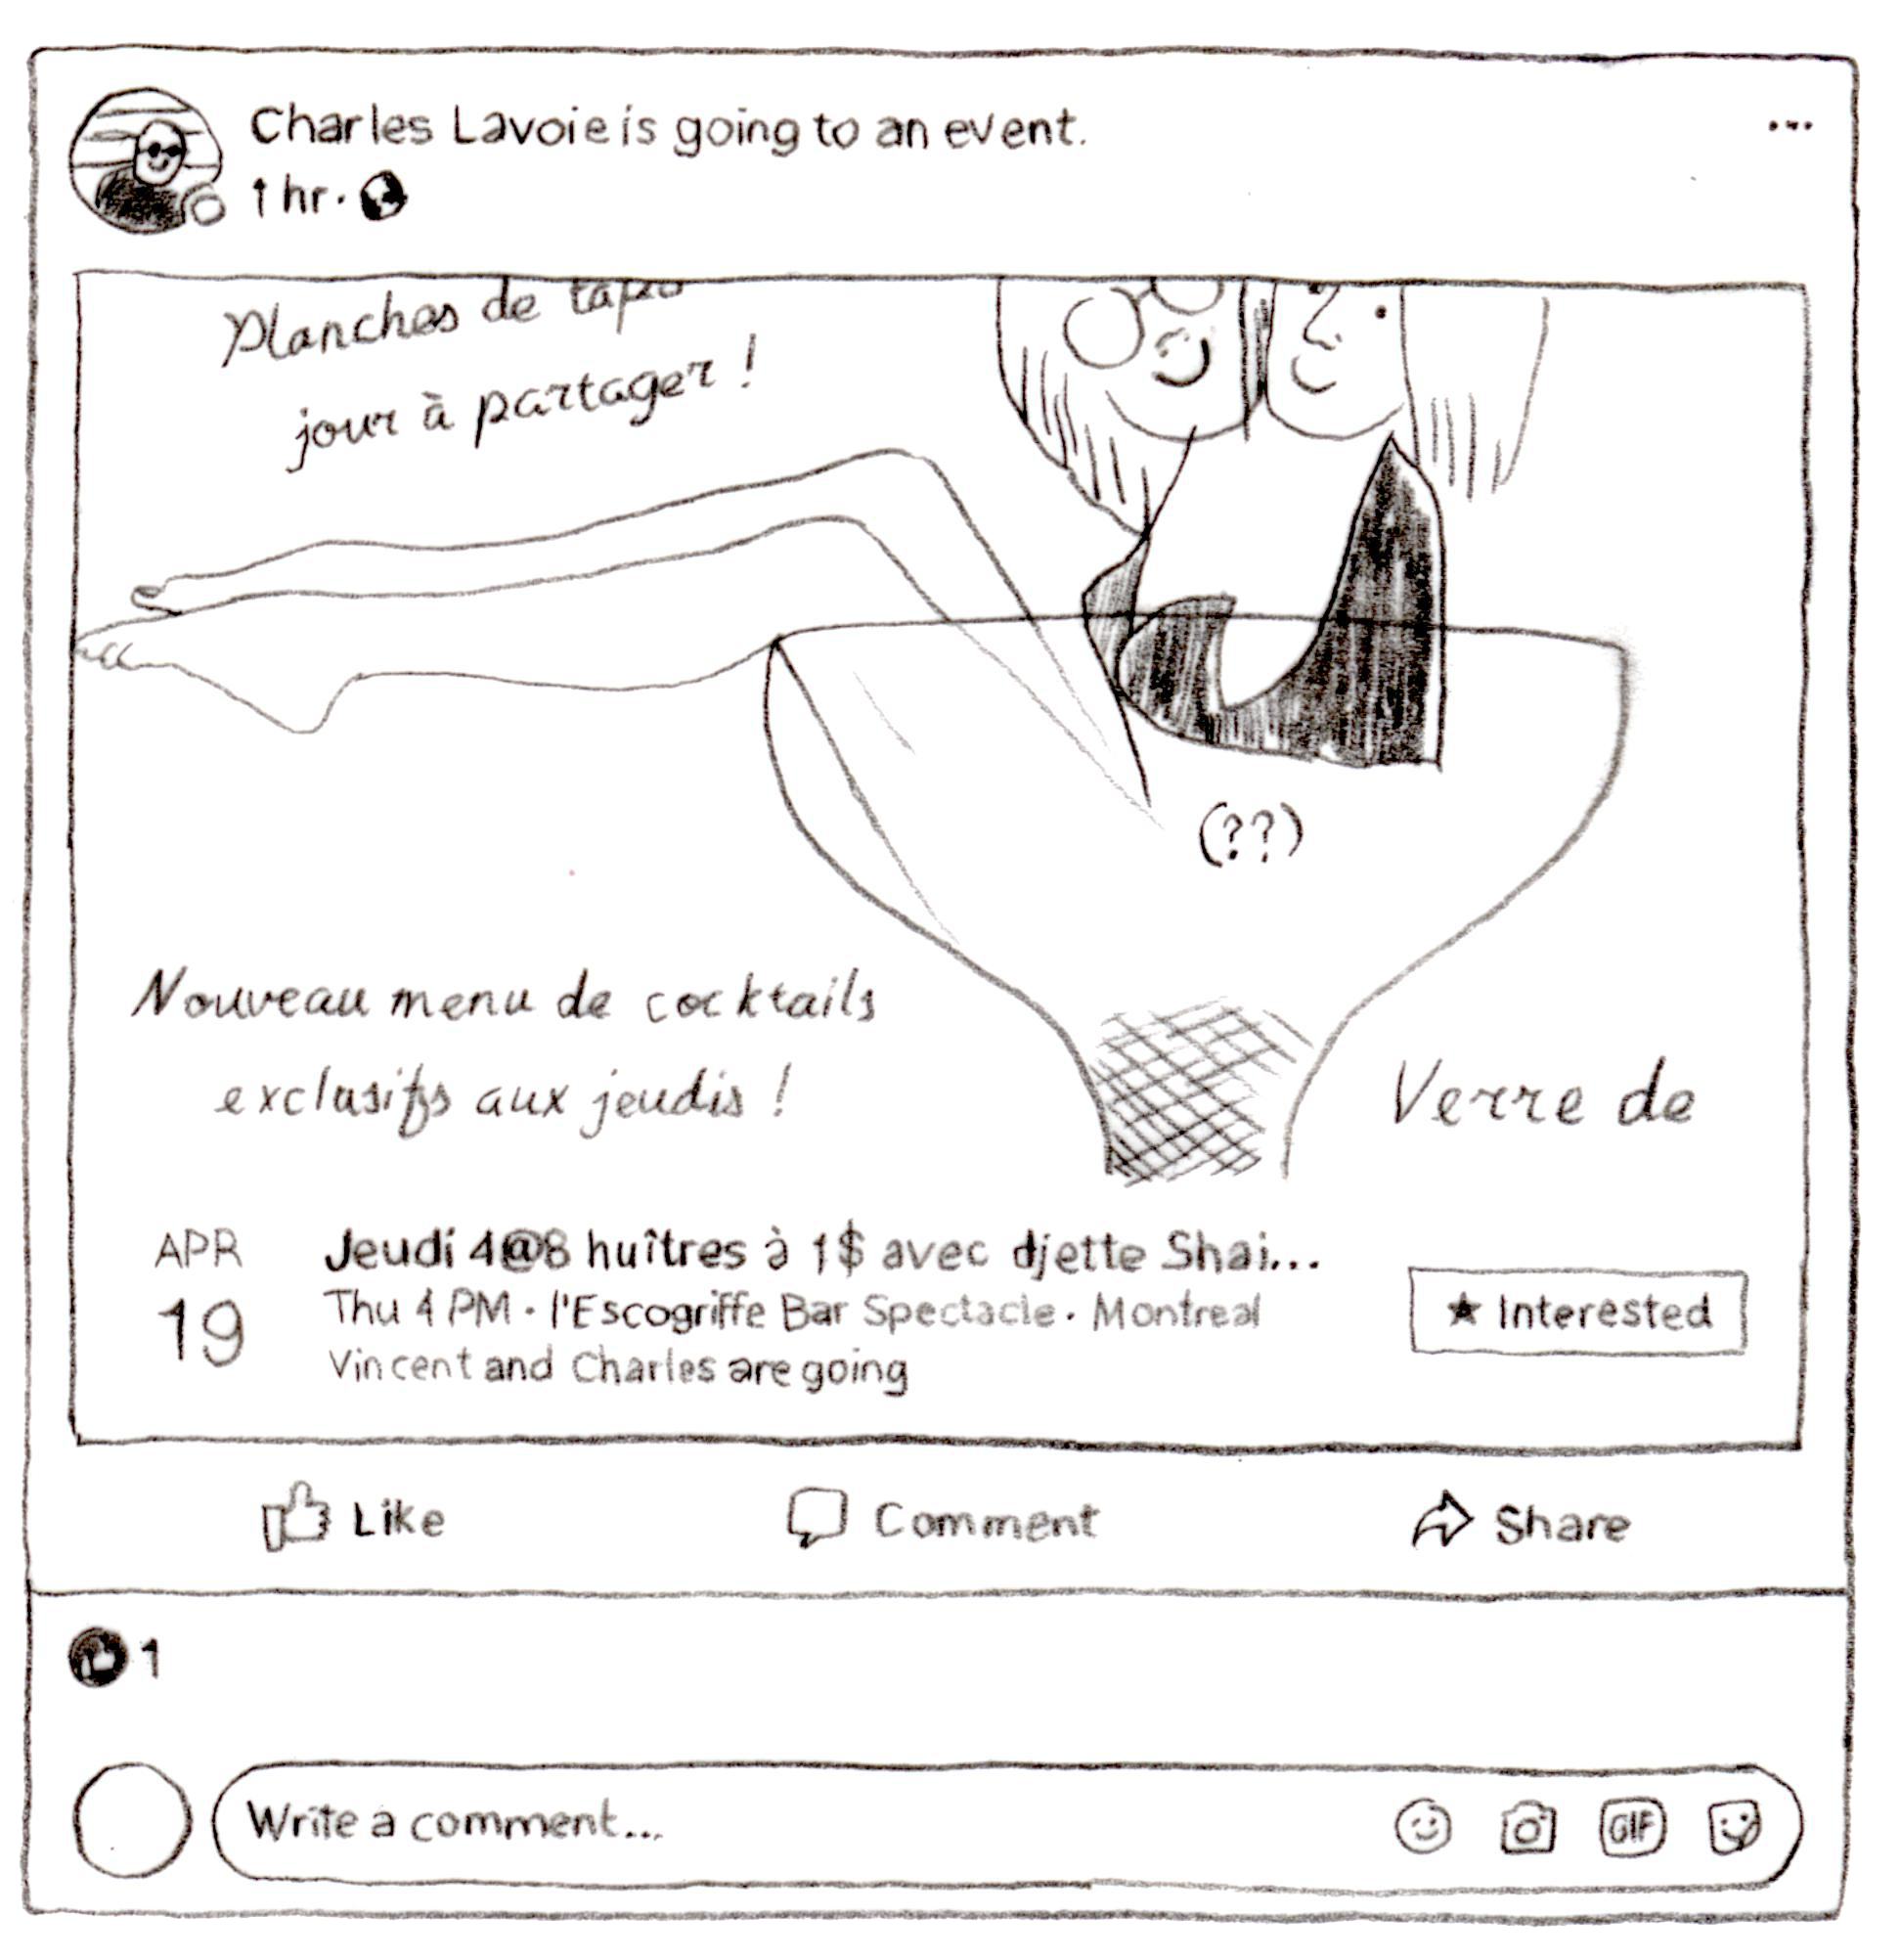 Charles Lavoie is going to an event.
1 hr.
Planches de
jour à partager !
(??)
Nouveau menu de cocktails
exclusifs aux jeudis !
Verre de
APR
19
Jeudi 4@8 huîtres à 1$ avec djette Shai...
Thu 4 PM · l'Escogriffe Bar Spectacle · Montreal
Vincent and Charles are going
★ Interested
Like
Comment
Share
1
Write a comment...
GIF